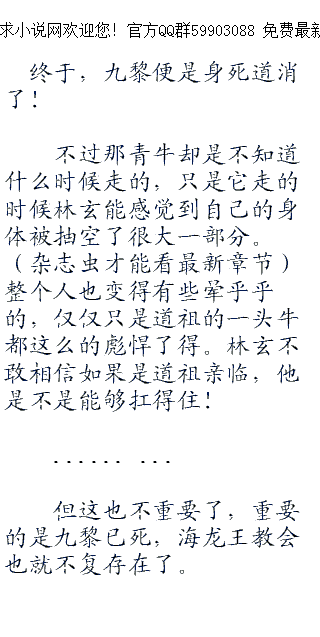 求小说网欢迎您！官方QQ群59903088 免费最新
终于，九黎便是身死道消
了！
不过那青牛却是不知道
什么时候走的，只是它走的
时候林玄能感觉到自己的身
体被抽空了很大一部分。
（杂志虫才能看最新章节）
整个人也变得有些晕乎乎
的，仅仅只是道祖的一头牛
都这么的彪悍了得。林玄不
敢相信如果是道祖亲临，他
是不是能够扛得住！
...... ...
但这也不重要了，重要
的是九黎已死，海龙王教会
也就不复存在了。